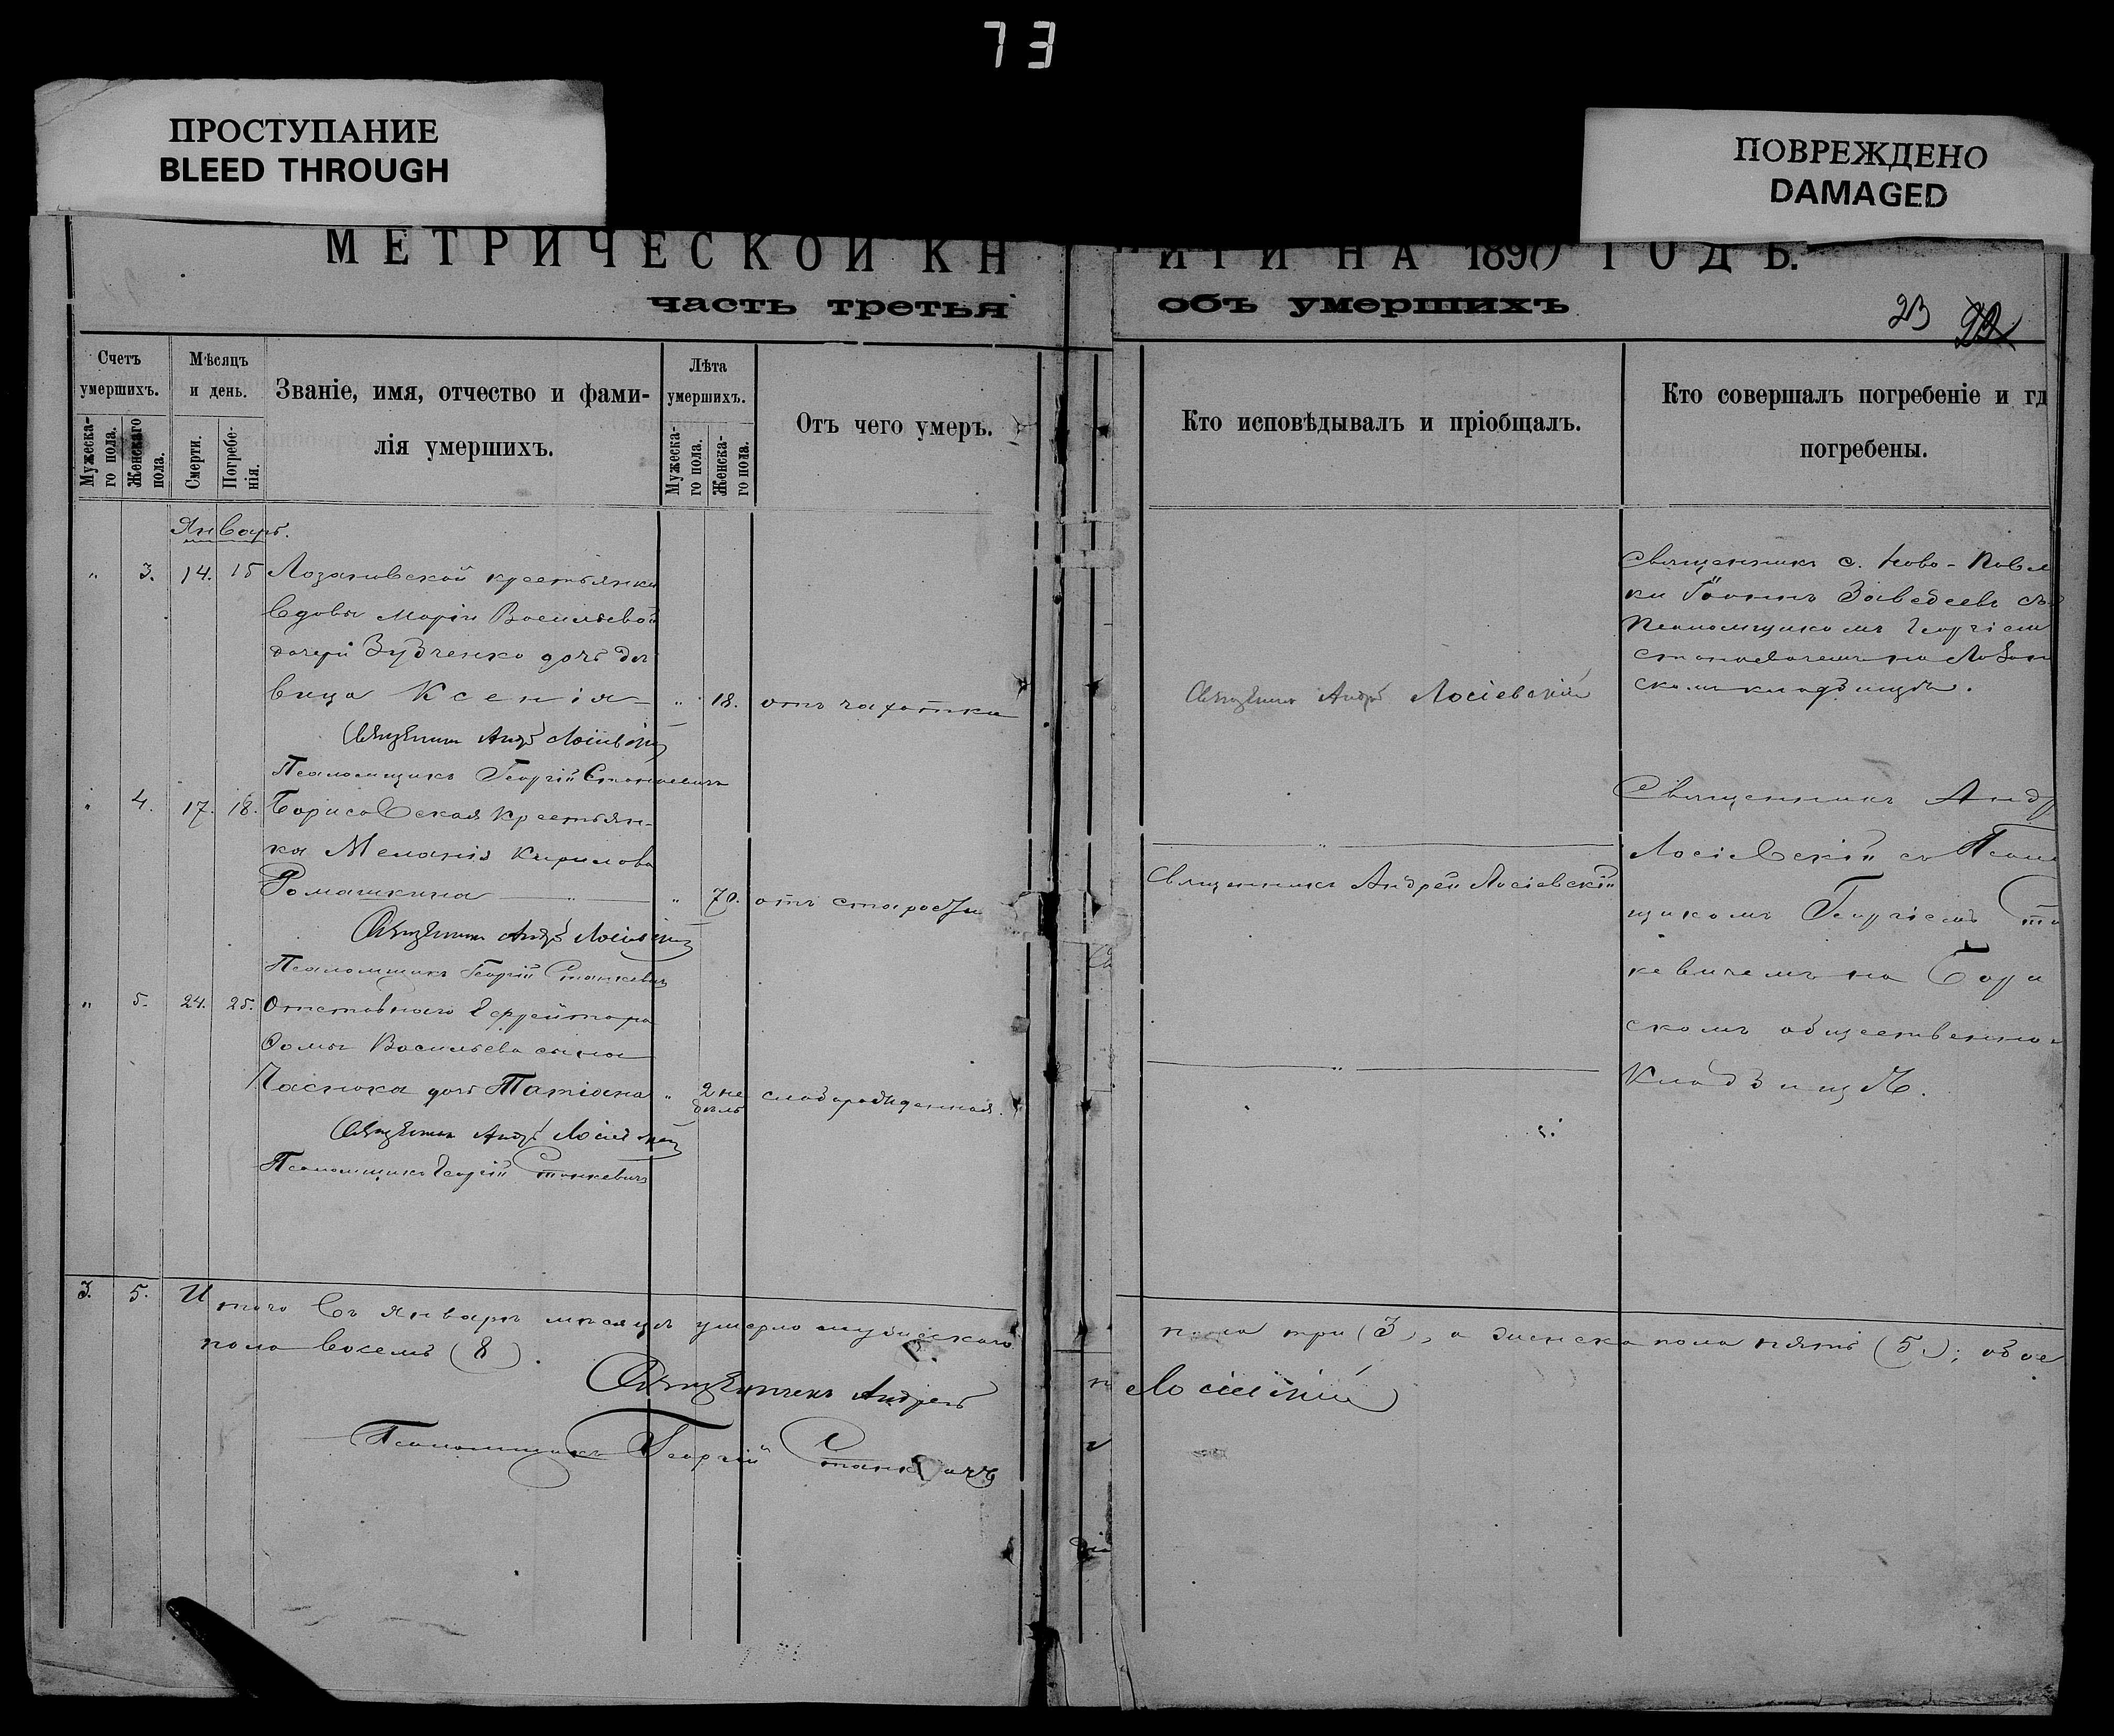 73
ПРОСТУПАНИЕ
BLEED THROUGH
ПОВРЕЖДЕНО
DAMAGED
МЕТРИЧЕСКОЙ КН
ИГИ НА 1890 ГОДЪ.
часть третья
объ умершихъ
23
Счетъ умершихъ.
Мужеска-го пола.
Женскаго пола.
Мѣсяцъ и день.
Смерти.
Погребе-нія.
Званіе, имя, отчество и фами-
лія умершихъ.
Лѣта умершихъ.
Мужеска-го пола.
Женска-го пола.
Отъ чего умеръ.
Кто исповѣдывалъ и пріобщалъ.
Кто совершалъ погребеніе и гд
погребены.
Январь.
" 3. 14. 15 Лозановской крестьянки
вдовы Маріи Васильевой
дочери Зубченко дочь дѣ
вица Ксенія " 18. отъ чахотки
Священникъ Андрей Лосіевскій
Псаломщикъ Георгій Станкевичъ
Священникъ Андрей Лосіевскій
Священникъ с. Ново-Павл
ки Іоаннъ Заведеевъ съ
Псаломщикомъ Георгіем
Станкевичемъ на Лозан
скомъ кладбищѣ.
" 4. 17. 18. Борисовская крестьян-
ка Меланія Кирилова
Ромашкина " 70. отъ старости
Священникъ Андрей Лосіевскій
Псаломщикъ Георгій Станкевичъ
Священникъ Андрей Лосіевскій
Священникъ Андр
Лосіевскій съ Псал
щикомъ Георгіемъ Ста
кевичемъ на Бори
скомъ общественно
Кладбищѣ.
" 5. 24. 25. Отставнаго Ефрейтора
Ѳомы Васильева сына
Пасюка дочь Татіана " 2 не
дѣль слаборожденная.
Священникъ Андрей Лосіевскій
Псаломщикъ Георгій Станкевичъ
3. 5. Итого въ Январѣ мѣсяцѣ умерло мужескаго
пола три (3), а женска пола пять (5); обое
пола восемь (8).
Священникъ Андрей Лосіевскій
Псаломщикъ Георгій Станкевичъ